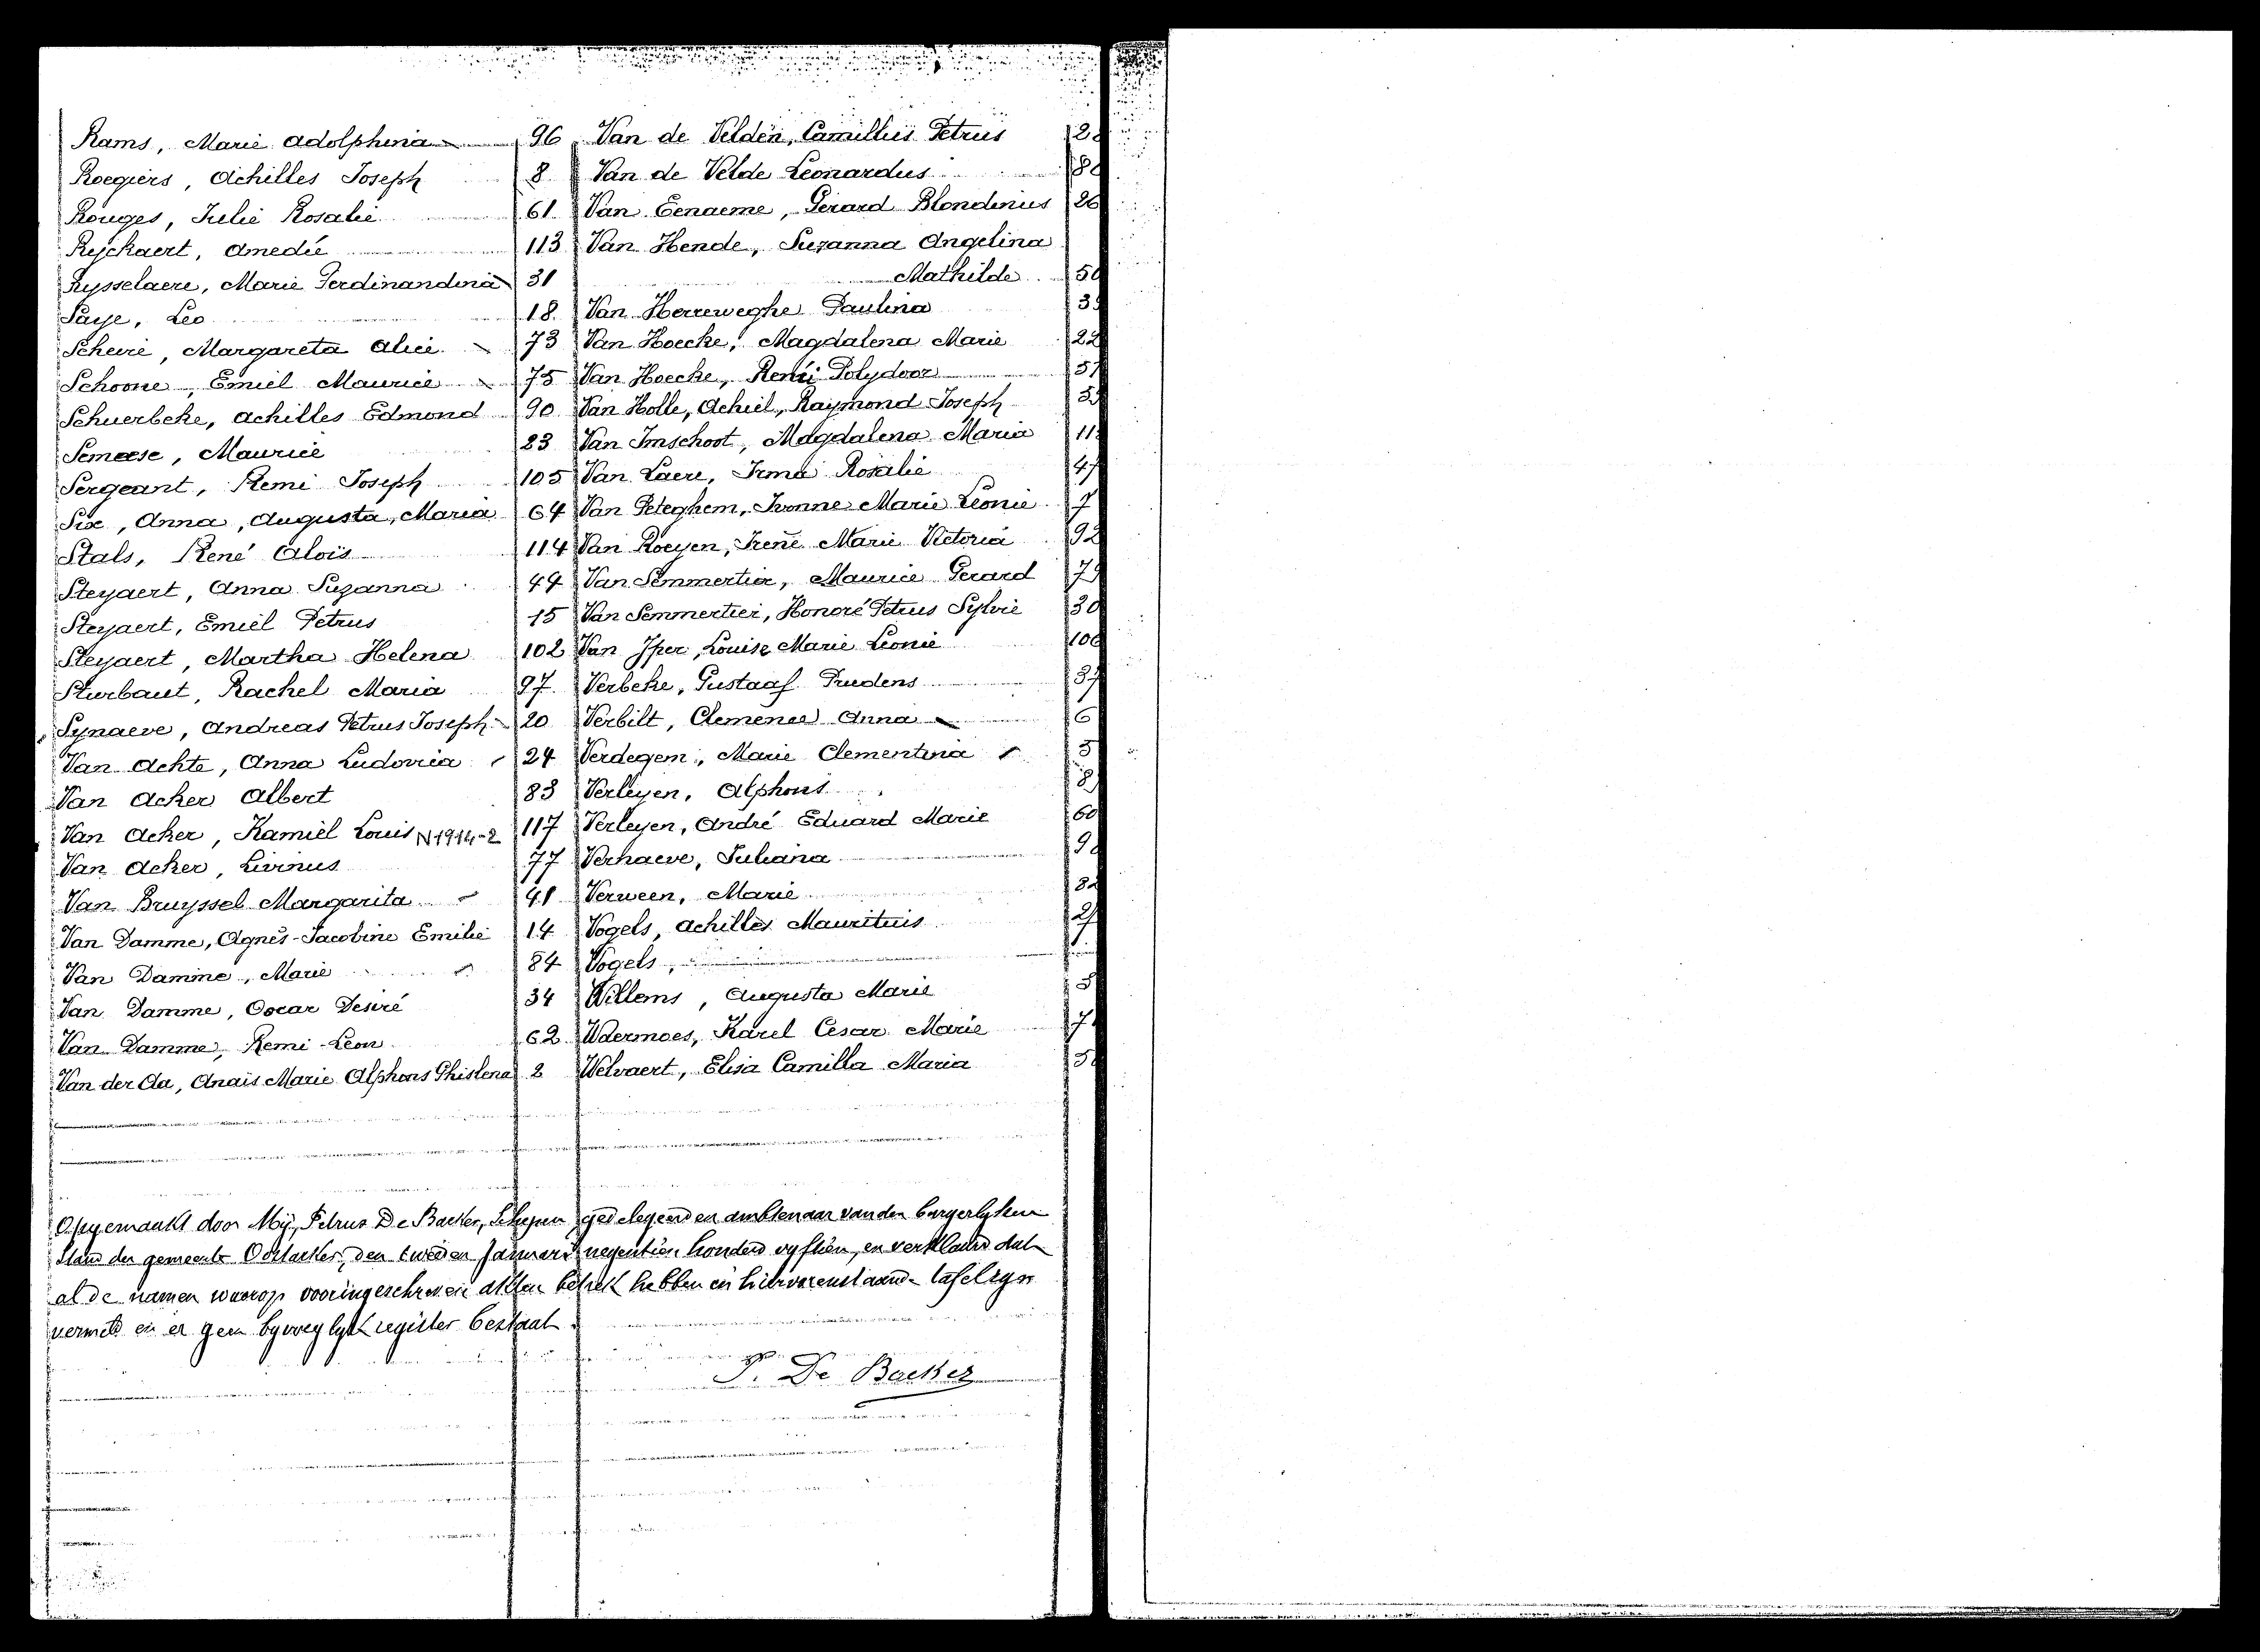 Rams, Marie Adolphina 96
Roegiers, Achilles Joseph 8
Rouges, Julie Rosalie 61
Ryckaert, Amedée 113
Rysselaere, Marie Ferdinandina 31
Saye, Leo 18
Scheire, Margareta Alice 73
Schoone, Emiel Maurice 75
Schuerbeke, Achilles Edmond 90
Semeese, Maurice 23
Sergeant, Remi Joseph 105
Six, Anna, Augusta, Maria 64
Stals, René Aloïs 114
Steyaert, Anna Suzanna 44
Steyaert, Emiel Petrus 15
Steyaert, Martha Helena 102
Sturbaut, Rachel Maria 97
Synaeve, Andreas Petrus Joseph 20
Van Achte, Anna Ludovica 24
Van Acker Albert 83
Van Acker, Kamiel Louis N 1914-2 117
Van Acker, Livinus 77
Van Bruyssel Margarita 41
Van Damme, Agnès-Jacobine Emilie 14
Van Damme, Marie 84
Van Damme, Oscar Desiré 34
Van Damme, Remi-Leon 62
Van der Aa, Anaïs Marie Alphons Ghislena 2
Van de Velden, Camillus Petrus
Van de Velde Leonardus
Van Eenaeme, Gerard Blondinus 26
Van Hende, Suzanna Angelina
Mathilde 50
Van Herreweghe Paulina
Van Hoecke, Magdalena Marie 22
Van Hoecke, René Polydoor
Van Holle, Achiel, Raymond Joseph
Van Imschoot, Magdalena Maria
Van Laere, Irma Rosalie 47
Van Peteghem, Ivonne Marie Leonie 7
Van Roeyen, Irene Marie Victoria 92
Van Semmertier, Maurice Gerard
Van Semmertier, Honoré Petrus Sylvie 30
Van Iper, Louise Marie Leonie
Verbeke, Gustaaf Prudens 37
Verbilt, Clemence Anna 6
Verdegem, Marie Clementina
Verleyen, Alphons
Verleyen, André Eduard Marie 60
Verhaeve, Juliana
Verween, Marie
Vogels, Achilles Mauritius
Vogels,
Willems, Augusta Marie
Waermoes, Karel Cesar Marie
Welvaert, Elisa Camilla Maria
Opgemaakt door Mij, Petrus De Backer, Schepen, gedelegeerden ambtenaar van den burgerlyken
stand der gemeente Oostacker, den tweeden Januari negentien honderd vyftien, en verklaard dat
al de namen waarop vooringeschreven akten betrek hebben in hiervorenstaande tafel zyn
vermeld en er geen byvoeglyk register bestaat.
P. De Backer